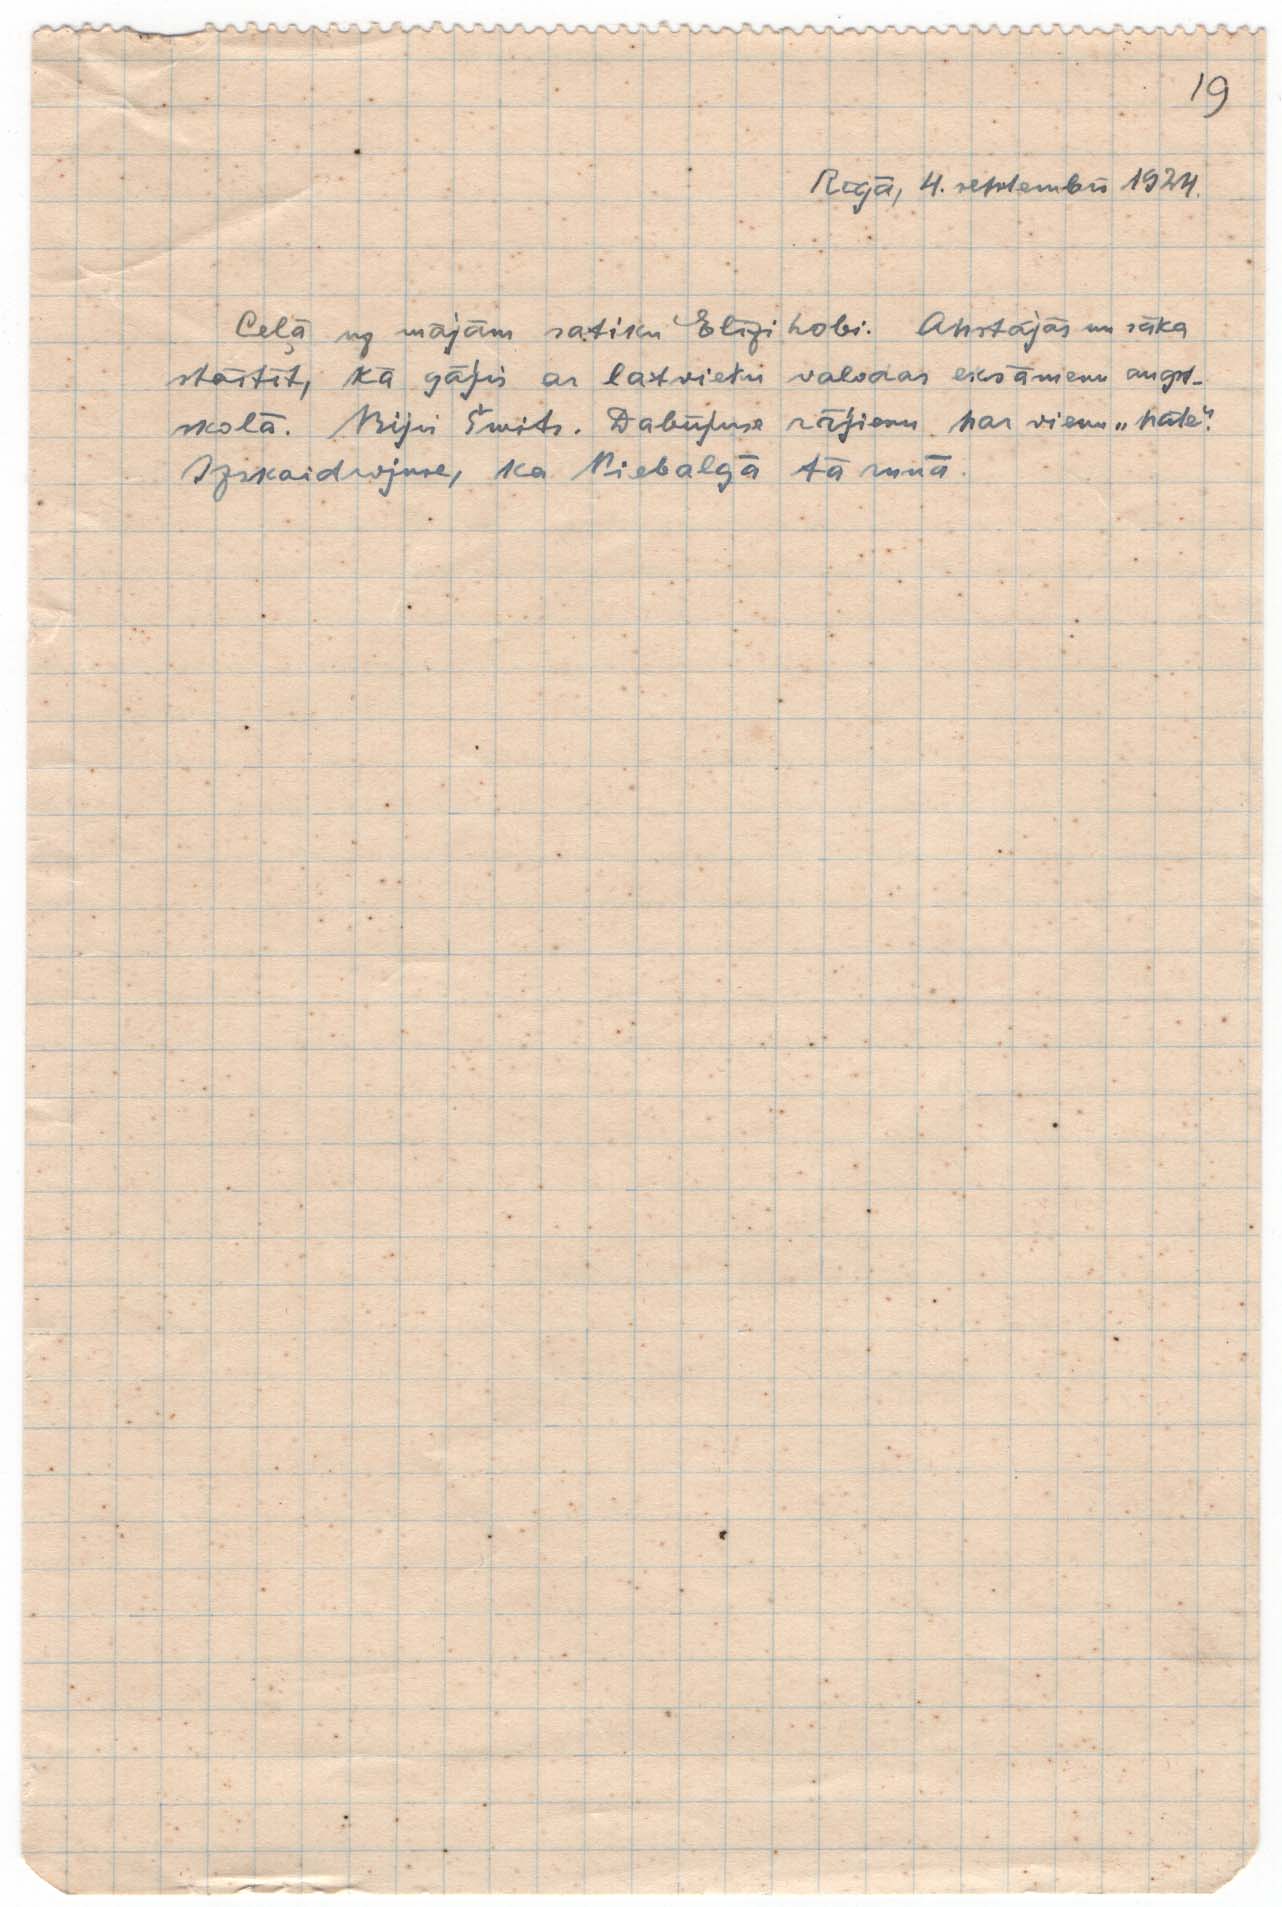 19
Rīgā, 4. septembrī 1924.
Ceļā uz mājām satiku Elīzi Apstājās un sāka
stāstīt, kā gājis ar latviešu valodas eksāmenu augst-
skolā. Bijis Šmits. Dabūjuse rājienu par vienu „pāte".
Izskaidrojuse, ka Piebalgā tā runā.